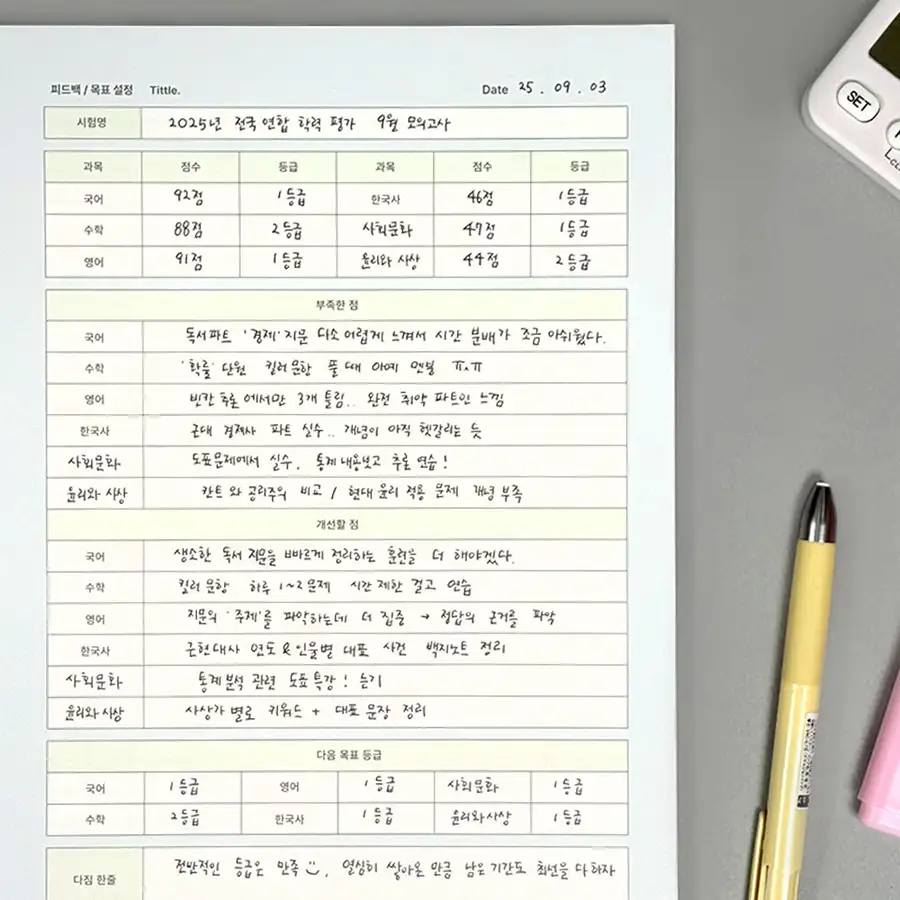 피드백 / 목표 설정 Tittle. Date 25 . 09 . 03
시험명 2025년 전국 연합 학력 평가 9월 모의고사
과목 점수 등급 과목 점수 등급
국어 92점 1등급 한국사 46점 1등급
수학 88점 2등급 사회문화 47점 1등급
영어 91점 1등급 윤리와 사상 44점 2등급
부족한 점
국어 독서파트 '경제' 지문 다소 어렵게 느껴서 시간 분배가 조금 아쉬웠다.
수학 '확률' 단원 킬러문항 풀 때 아예 멘붕 ㅠㅠ
영어 빈칸 추론에서만 3개 틀림.. 완전 취약 파트인 느낌
한국사 근대 경제사 파트 실수.. 개념이 아직 헷갈리는 듯
사회문화 도표문제에서 실수. 통계 내용보고 추론 연습!
윤리와 사상 칸트와 공리주의 비교 / 현대 윤리 적용 문제 개념 부족
개선할 점
국어 생소한 독서 지문을 빠르게 정리하는 훈련을 더 해야겠다.
수학 킬러문항 하루 1~2문제 시간 제한 걸고 연습
영어 지문의 '주제'를 파악하는데 더 집중 → 정답의 근거를 파악
한국사 근현대사 연도 & 인물별 대표 사건 백지노트 정리
사회문화 통계 분석 관련 도표 특강! 듣기
윤리와 사상 사상가 별로 키워드 + 대표 문장 정리
다음 목표 등급
국어 1등급 영어 1등급 사회문화 1등급
수학 2등급 한국사 1등급 윤리와사상 1등급
다짐 한줄 전반적인 등급은 만족 , 열심히 쌓아온 만큼 남은 기간도 최선을 다하자
SET